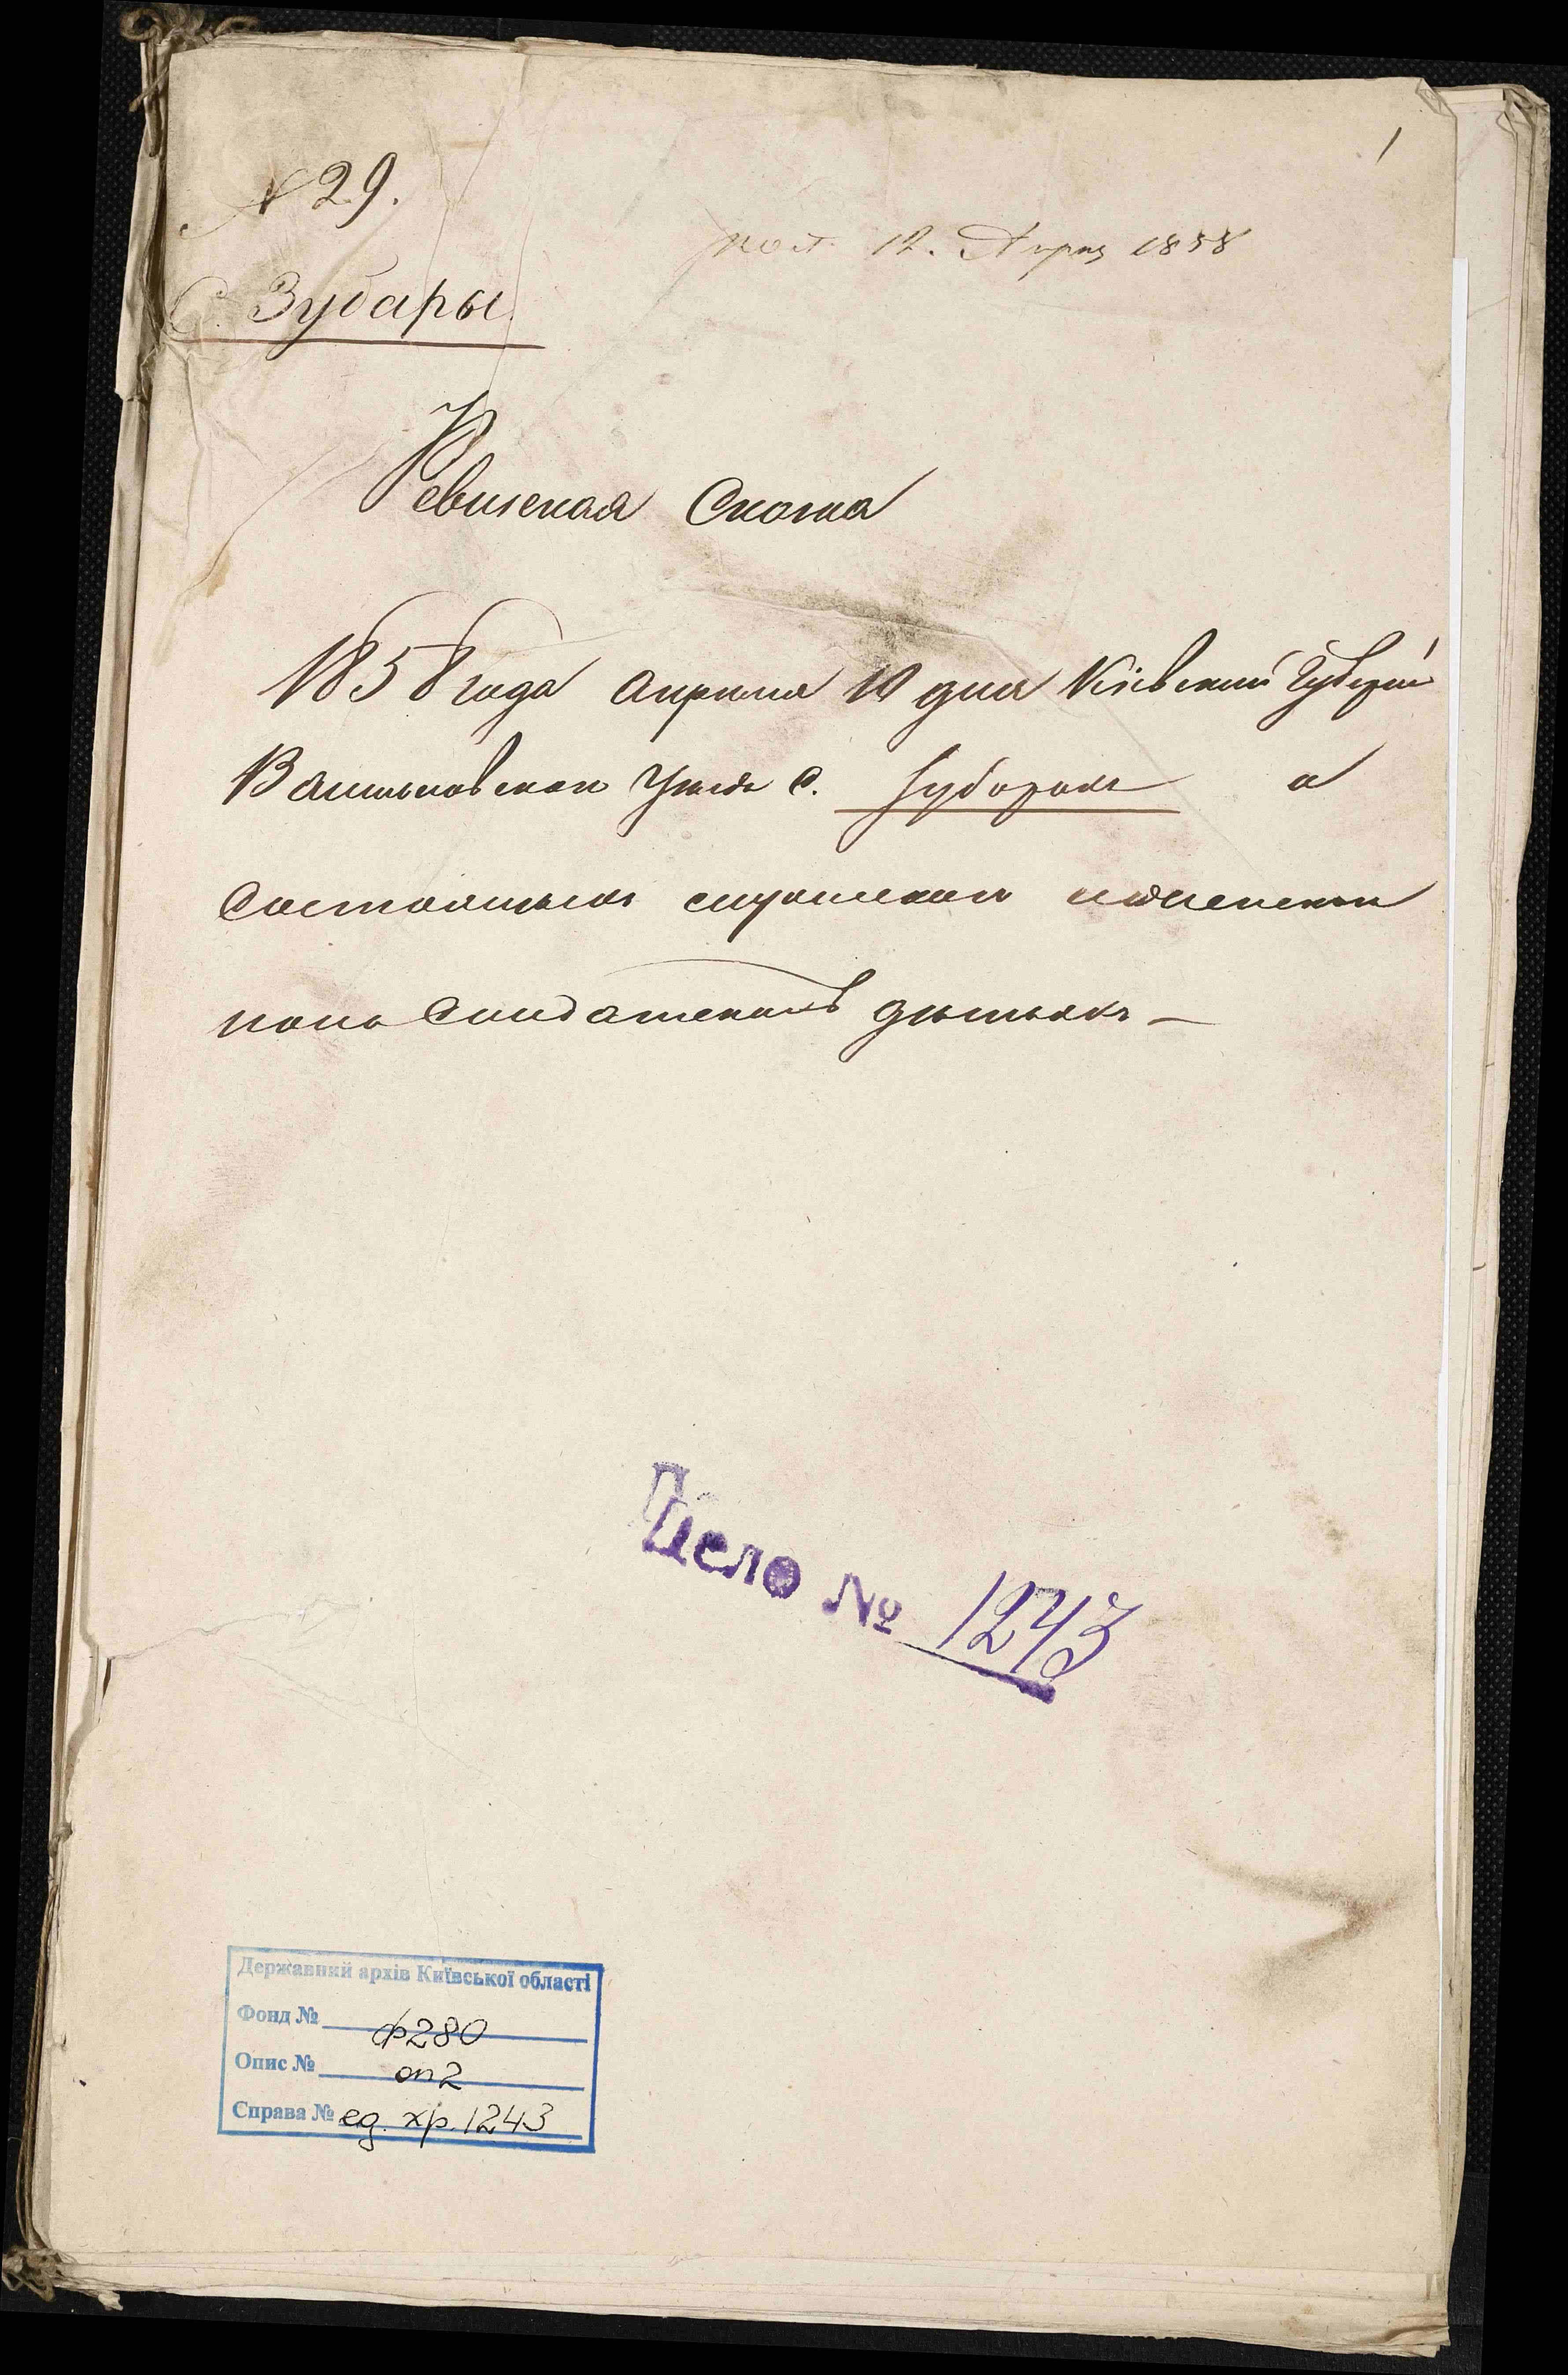 1
№ 29.
12. Апр 1858
С. Зубары.
Ревизская Сказка
1858 года Апреля 10 дня Кіевской Губерніи
Васильковскаго Уезда С. Зубарахъ о
Состоящихъ
Солдатскихъ дѣтяхъ –
Дело № 1243
Державний архів Київської області
Фонд № ф280
Опис № оп2
Справа № ед. хр. 1243